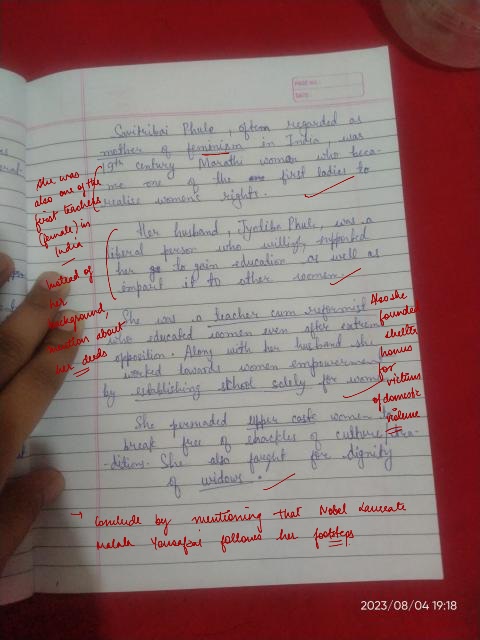 PAGE NO.:
DATE:
Savitribai Phule, often regarded as
mother of feminism in India was
19th century Marathi woman who beca-
me one of the first ladies to
realise women's rights.
She was
also one of the
first teachers
(female) in
India
Her husband, Jyotiba Phule, was a
liberal person who willigly supported
her to gain education as well as
impart it to other women.
Instead of
her
background,
mention about
her deeds
She was a teacher cum reformist
who educated women even after extrem
opposition. Along with her husband she
worked towards women empowerment
by establishing school solely for wom
Also she
founded
shelter
homes
for
victims
of domestic
violence
She persuaded upper caste women to
break free of shackles of culture, tra-
ditions. She also fought for dignity
of widows.
→ Conclude by mentioning that Nobel Laureate
Malala Yousafzai follows her footsteps.
2023/08/04 19:18